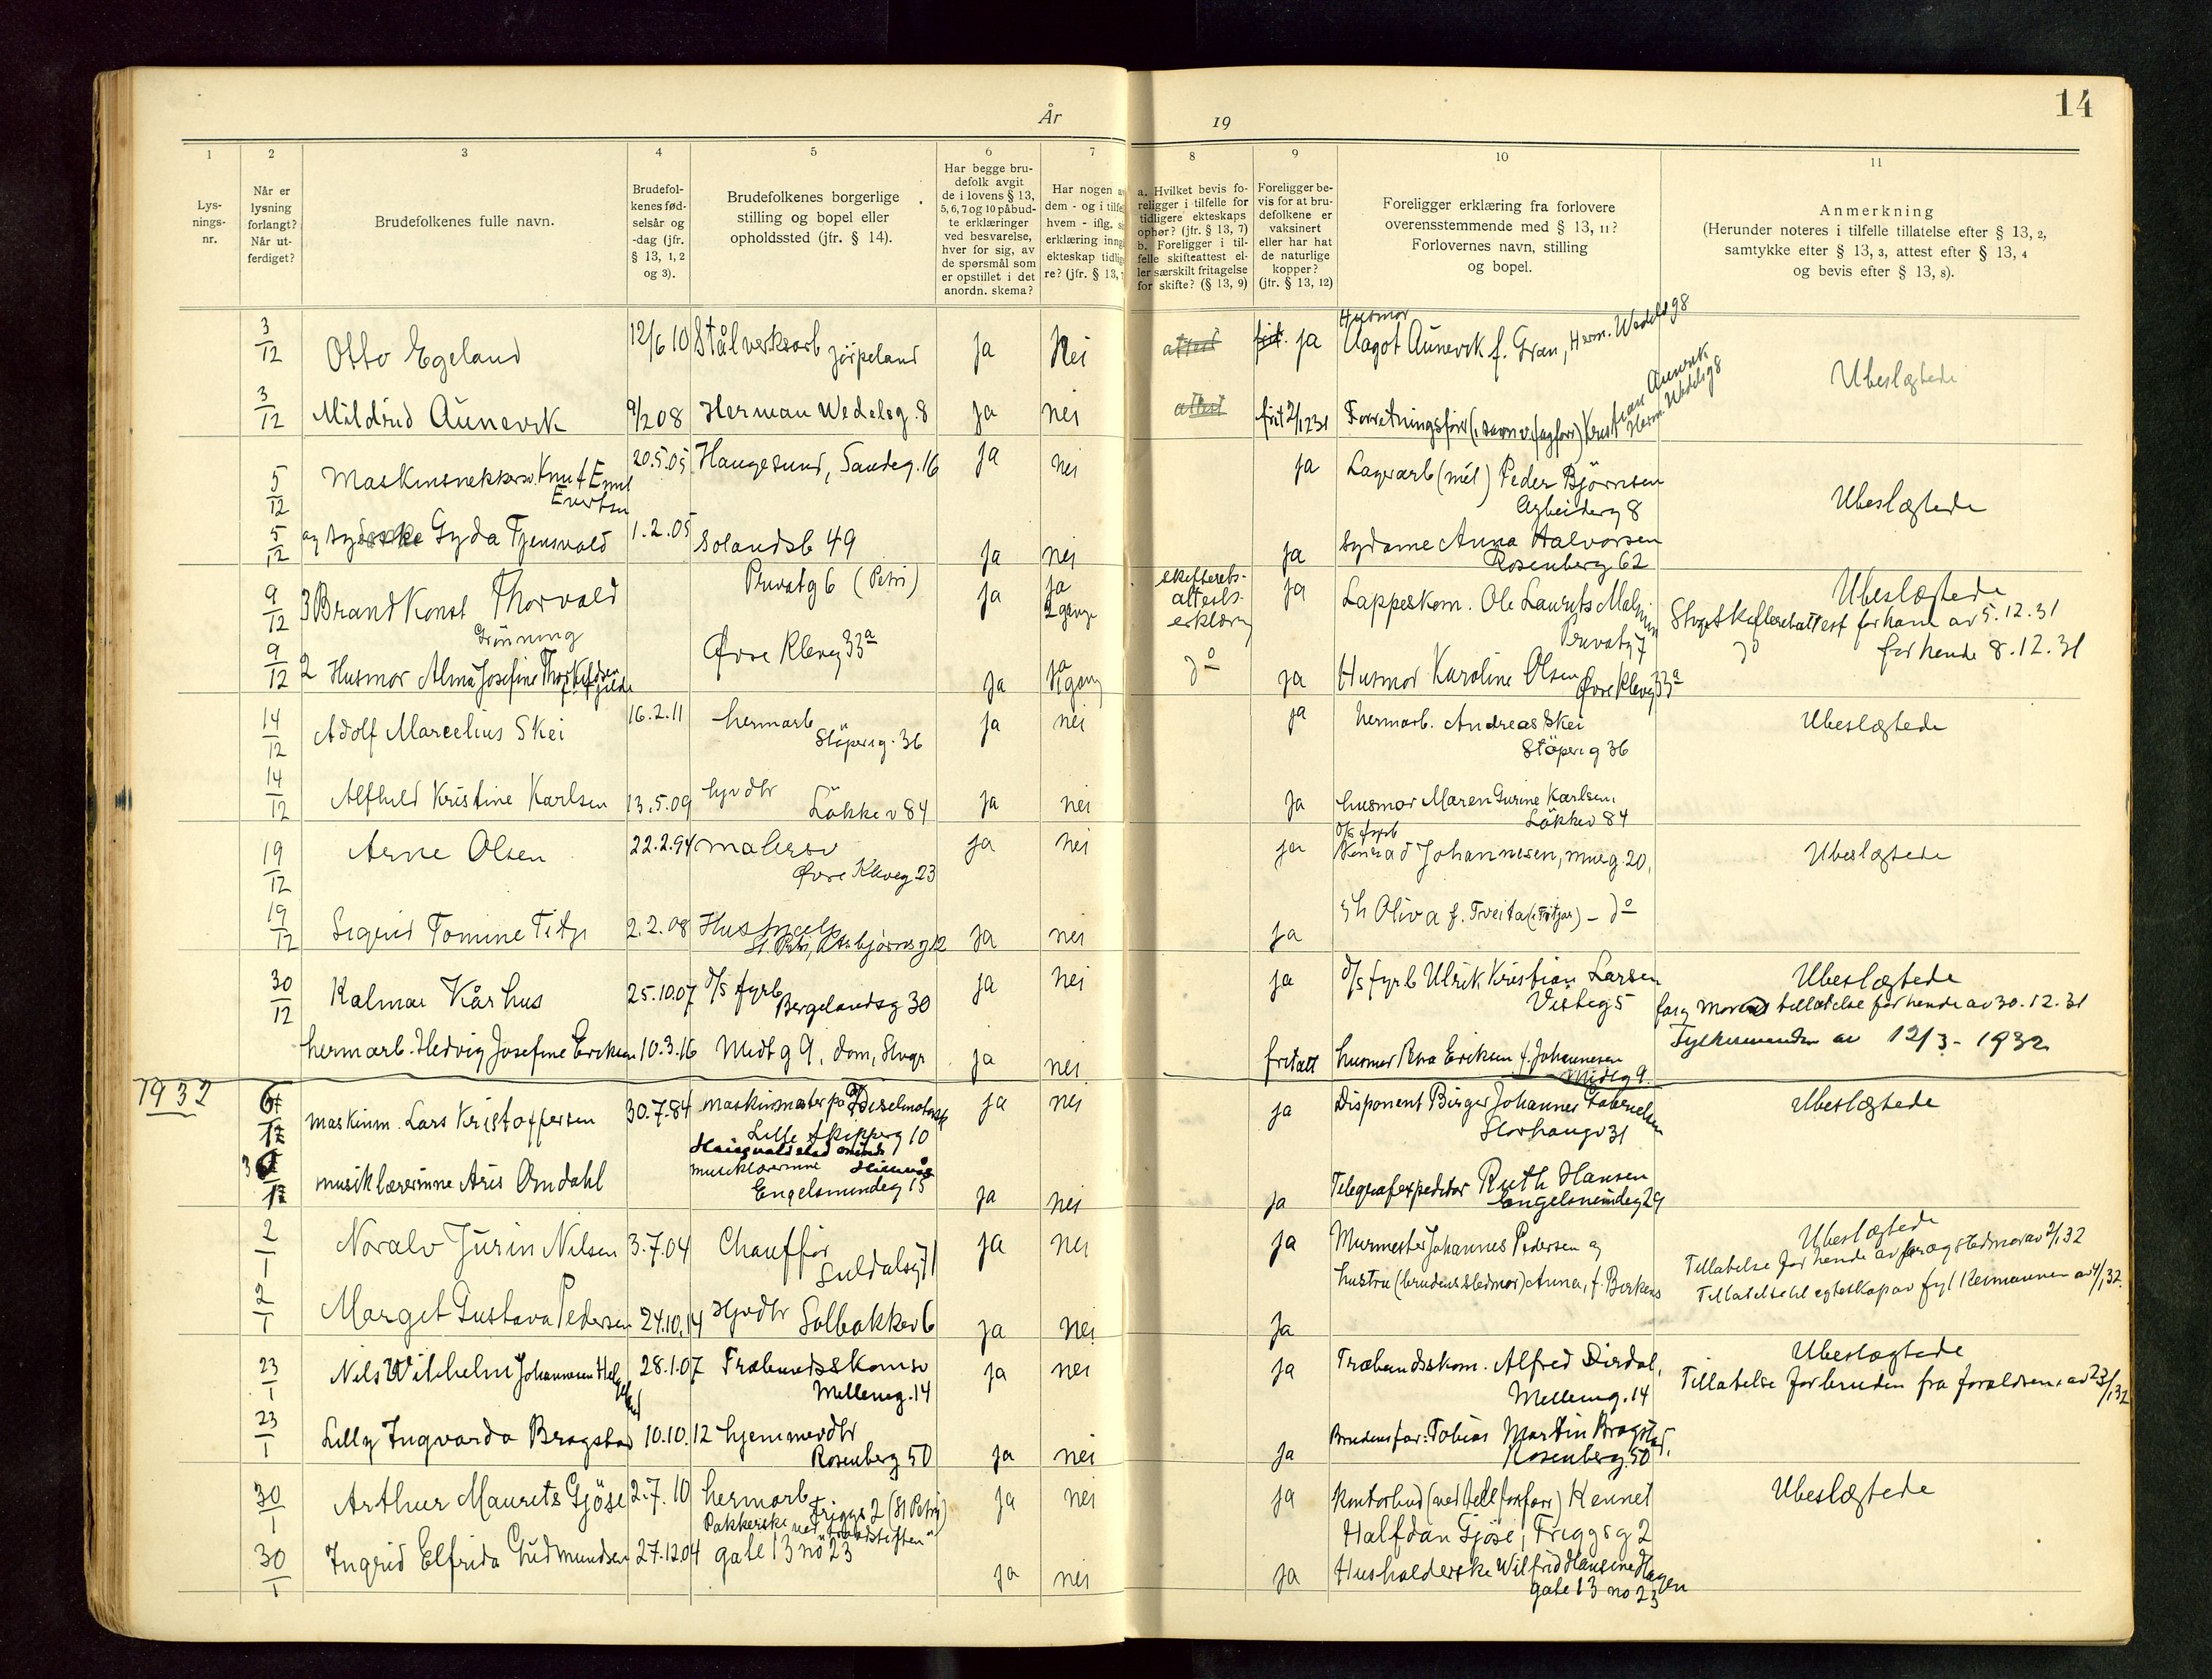 År 19
14
1 2 3 4 5 6 7 8 9 10 11
Lys-
nings-
nr.
Når er
lysning
forlangt?
Når ut-
ferdiget?
Brudefolkenes fulle navn.
Brudefol-
kenes fød-
selsår og
-dag (jfr.
§ 13, 1, 2
og 3).
Brudefolkenes borgerlige
stilling og bopel eller
opholdssted (jfr. § 14).
Har begge bru-
defolk avgit
de i lovens § 13,
5, 6, 7 og 10 påbud-
te erklæringer
ved besvarelse,
hver for sig, av
de spørsmål som
er opstillet i det
anordn. skema?
Har nogen a
dem - og i tilfe
hvem - iflg. s
erklæring inng
ekteskap tidlig
re? (jfr. § 13,
a. Hvilket bevis fo-
religger i tilfelle for
tidligere ekteskaps
ophør? (jfr. § 13, 7)
b. Foreligger i til-
felle skifteattest el-
ler særskilt fritagelse
for skifte? (§ 13, 9)
Foreligger be-
vis for at bru-
defolkene er
vaksinert
eller har hat
de naturlige
kopper?
(jfr. § 13, 12)
Foreligger erklæring fra forlovere
overensstemmende med § 13, 11?
Forlovernes navn, stilling
og bopel.
Anmerkning
(Herunder noteres i tilfelle tillatelse efter § 13, 2,
samtykke efter § 13, 3, attest efter § 13, 4
og bevis efter § 13, 8).
3/12 Otto Egeland 12/6 10 Stålverksarb Jörpeland ja Nei attest frit. ja Husmor
Aagot Aunevik f. Gran, Herm. Wedelsg 8
Ubeslægtede
3/12 Mildrid Aunevik 9/2 08 Herman Wedelsg. 8 ja nei attest frit 2/12 31 Forretningsfører Kristian Aunevik
Herm. Wedelsg 8
5/12 Maskinsnekkersv. Knut Emil
Evertsen 20.5.05 Haugesund, Sandeg. 16 ja nei ja Lagerarb Peder Björnsen
Arbeiderg 8
Ubeslægtede
5/12 og syerske Gyda Tjensvold 1.2.05 Solandsb 49 ja nei ja sydame Anna Halvorsen
Rosenberg 62
9/12 3 Brandkonst Thorvald
Grönning Privatg 6 (Petri) ja ja
2 gange skifterets-
attests-
erklæring ja Lappeskom. Ole Laurits Malmin
Privatg 7
Ubeslægtede
Stvgr Skifterettattest for ham av 5.12.31
9/12 2 Husmor Alma Josefine Thorkildsen
f. Gilde Øvre Kleivg 33a ja ja
1 gang do ja Husmor Karoline Olsen Øvre Kleivg 33a
do for hende 8.12.31
14/12 Adolf Marcelius Skei 16.2.11 hermarb
Stöperig. 36 ja nei ja hermarb. Andreas Skei
Stöperig 36
Ubeslægtede
14/12 Alfhild Kristine Karlsen 13.5.09 hjvdtr
Lökkev 84 ja nei ja husmor Maren Gurine Karlsen,
Lökkev 84
19/12 Arne Olsen 22.2.94 malersv
Øvre Kleivg 23 ja nei ja D/S fyrb
Konrad Johannesen, murg. 20,
Ubeslægtede
19/12 Sigrid Tomine Titze 2.2.08 Hushjelp
St. Petri, Asbjörnsg 12 ja nei ja Oliva f. Tveita (Fitjar) - do
30/12 Kalmar Kårhus 25.10.07 D/S fyrb
Bergelandsg 30 ja nei ja D/S fyrb Ulrik Kristian Larsen
Vesteg 5
Ubeslægtede
far og mors tillatelse for hende av 30.12.31
hermarb. Hedvig Josefine Eriksen 10.3.16 Midtg 9, dom, Stvgr ja nei fritatt husmor Rosa Eriksen f. Johannesen
Midtg 9.
Fylkesmanden av 12/3 - 1932
1932
maskinm. Lars Kristoffersen 30.7.84 maskinmester på Dieselmotorsk
Lille Skipperg 10 ja nei ja Disponent Birger Johannes Gabrielsen
Storhaugv 31
Ubeslægtede
musiklærerinne Aris Omdahl musiklærerinne
Engelsmindeg 15 ja nei ja Telegrafexpeditör Ruth Hansen
Engelsmindeg 29
2/1 Noralv Jurin Nilsen 3.7.04 Chauffør
Suldalsg 1 ja nei ja Murmester Johannes Pedersen og
hustru (brudens stedmor) Anna, f. Birkens
Ubeslægtede
Tillatelse for hende av far og stedmor av 2/1 32
Tillatelse til egteskap av fylkesmannen av 4/1 32.
2/1 Margit Gustava Pedersen 24.10.14 Hjvdtr Solbakkev 6 ja nei ja
23/1 Nils Wilhelm Johannesen Helgeland 28.1.07 Træbundsskomsv
Mellemg. 14 ja nei ja Træbundsskom. Alfred Dirdal,
Mellemg. 14
Ubeslægtede
Tillatelse for bruden fra foreldrene av 23/1 32
23/1 Lilly Ingvarda Bragstad 10.10.12 hjemmevdtr
Rosenberg 50 ja nei ja Brudens far: Tobias Martin Bragstad,
Rosenberg 50
30/1 Arthur Maurits Gjöse 2.7.10 hermarb
Friggs 2 (St Petri) ja nei ja Kontorbud Kennet
Halfdan Gjöse, Friggsg 2
Ubeslægtede
30/1 Ingrid Elfrida Gudmundsen 27.12.04 Pakkerske ved "Traadstiften"
gate 13 no 23 ja nei ja Husholderske Wilfrid Hansine Hagen
gate 13 no 23